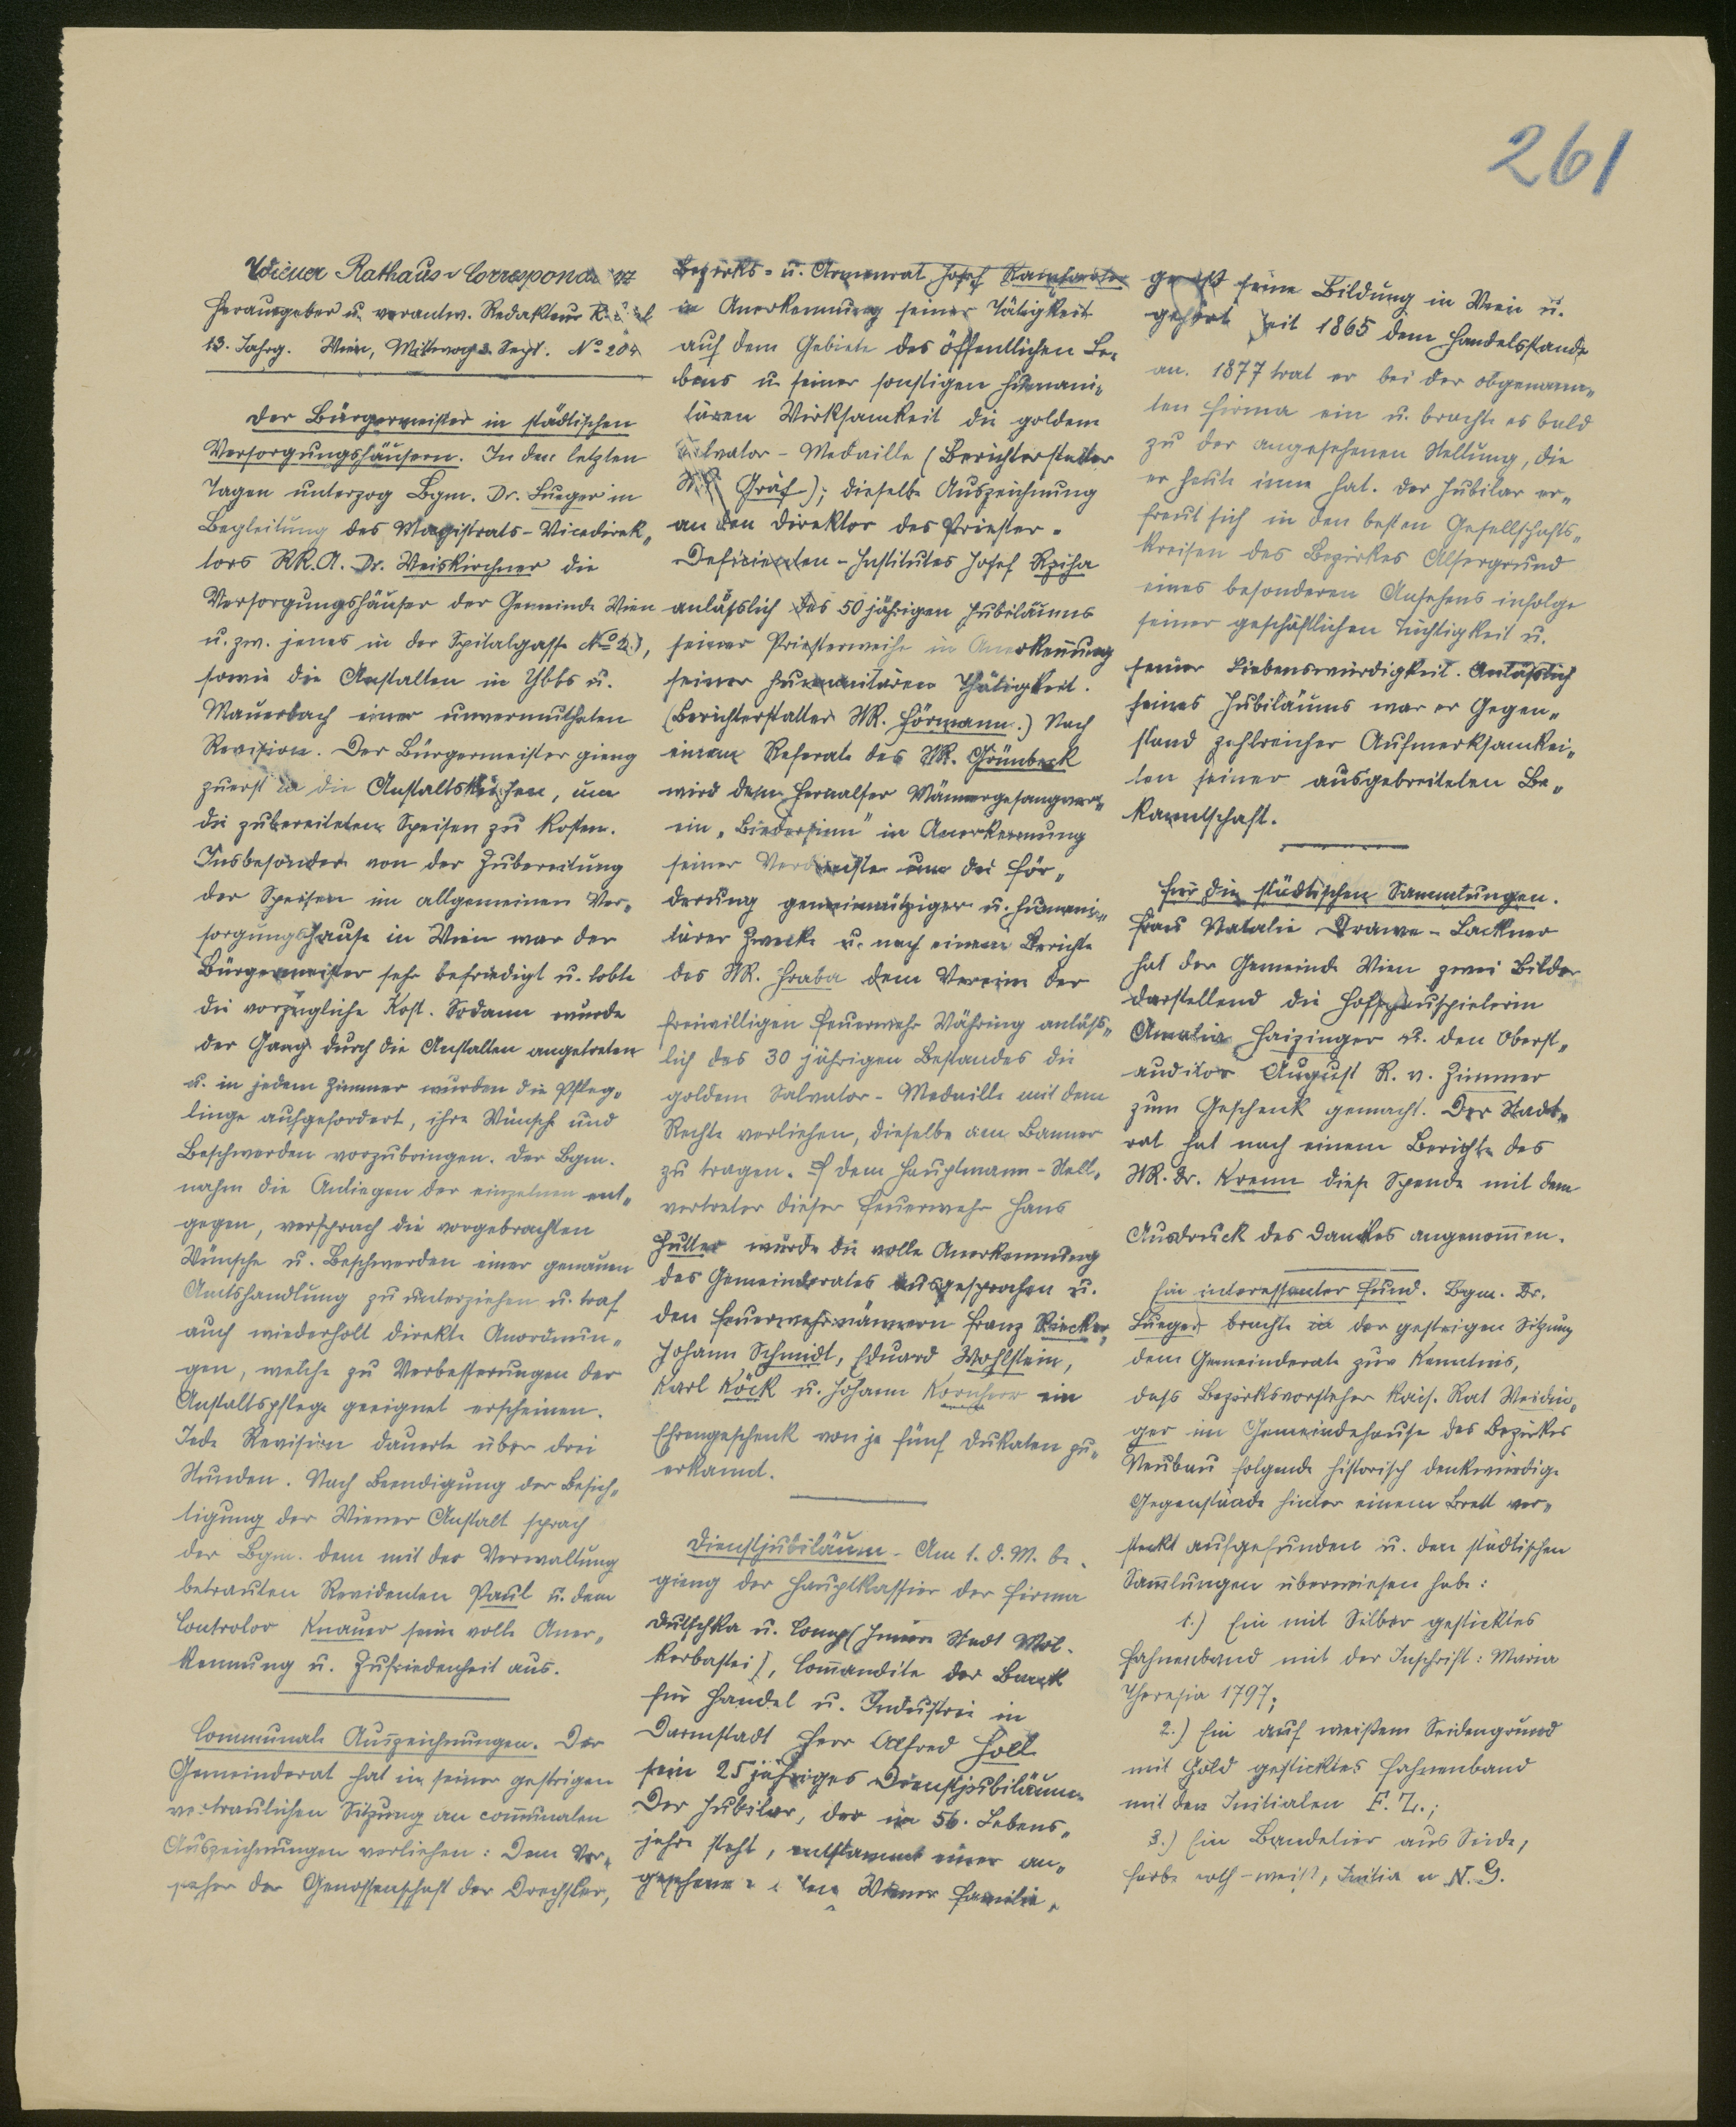 261
Wiener Rathaus-Correspondenz
Herausgeber u. verantw. Redakteur
13. Jahrg. Wien, Mittwoch 3. Sept. No 204
Der Bürgermeister in städtischen
Versorgungshäusern. In den letzten
Tagen unterzog Bgm. Dr. Lueger in
Begleitung des Magistrats-Vicedirek„
tors Dr. Weiskirchner die
Versorgungshäuser der Gemeinde Wien
u. zw. jenes in der Spitalgasse
sowie die Anstalten in Ybbs u.
Mauerbach einer unvermutheten
Revision. Der Bürgermeister gieng
zuerst in die Anstaltsküchen, um
die zubereiteten Speisen zu kosten.
Insbesondere von der Zubereitung
der Speisen im allgemeinen Ver„
sorgungshause in Wien war der
Bürgermeister sehr befriedigt u. lobte
die vorzügliche Kost. Sodann wurde
der Gang durch die Anstalten angetreten
u. in jedem Zimmer wurden die Pfleg„
linge aufgefordert, ihre Wünsche und
Beschwerden vorzubringen. Der Bgm.
nahm die Anliegen der einzelnen ent„
gegen, versprach die vorgebrachten
Wünsche u. Beschwerden einer genauen
Amtshandlung zu unterziehen u. traf
auch wiederholt direkte Anordnun„
gen, welche zu Verbesserungen der
Anstaltspflege geeignet erscheinen.
Jede Revision dauerte über drei
Stunden. Nach Beendigung der Besich„
tigung der Wiener Anstalt sprach
der Bgm. dem mit der Verwaltung
betrauten Revidenten Paul u. dem
Controlor Knauer seine volle Aner„
kennung u. Zufriedenheit aus.
Communale Auszeichnungen. Der
Gemeinderat hat in seiner gestrigen
vertraulichen Sitzung an com̅unalen
Auszeichnungen verliehen: Dem Vor„
steher der Genossenschaft der Drechsler,
Bezirks- u. Armenrat Josef
in Anerkennung seiner Tätigkeit
auf dem Gebiete des öffentlichen Le„
bens u. seiner sonstigen humani„
tären Wirksamkeit die goldene
Salvator-Medaille (Berichterstatter
StR. Gräf); dieselbe Auszeichnung
an den Direktor des Priester-
Deficienten-Institutes Josef Rziha
anlässlich des 50jährigen Jubiläums
seiner Priesterweihe in Anerkennung
seiner humanitären Thätigkeit.
(Berichterstatter StR. Hörmann.) Nach
einem Referate des StR. Grünbeck
wird dem Hernalser Männergesangver„
ein „Biedersinn" in Anerkennung
seiner Verdienste um die För„
derung gemeinnütziger u. humani„
tärer Zwecke u. nach einem Berichte
des StR. Hraba dem Vereine der
freiwilligen Feuerwehr Währing anläss„
lich des 30 jährigen Bestandes die
goldene Salvator-Medaille mit dem
Rechte verliehen, dieselbe am Banner
zu tragen. dem Hauptmann-Stell„
vertreter dieser Feuerwehr Hans
Huller wurde die volle Anerkennung
des Gemeinderates ausgesprochen u.
den Feuerwehrmännern Franz Riecker,
Johann Schmidt, Eduard Wohlstein,
Karl Köck u. Johann Kornherr ein
Ehrengeschenk von je fünf Dukaten zu„
erkannt.
Dienstjubiläum. Am 1. d. M. be„
gieng der Hauptkassier der Firma
Dutschka u. Comp (Innere Stadt Möl„
kerbastei), Com̅andite der Bank
für Handel u. Industrie in
Darmstadt Herr Alfred Holl
sein 25jähriges Dienstjubiläum.
Der Jubilar, der im 56. Lebens„
jahre steht, entstammt einer an„
gesehenen alten Wiener Familie,
genoß seine Bildung in Wien u.
gehört seit 1865 dem Handelsstande
an. 1877 trat er bei der obgenann„
ten Firma ein u. brachte es bald
zu der angesehenen Stellung, die
er heute inne hat. Der Jubilar er„
freut sich in den besten Gesellschafts„
kreisen des Bezirkes Alsergrund
eines besonderen Ansehens infolge
seiner geschäftlichen Tüchtigkeit u.
seiner Liebenswürdigkeit. Anlässlich
seines Jubiläums war er Gegen„
stand zahlreicher Aufmerksamkei„
ten seiner ausgebreiteten Be„
kanntschaft.
Für die städtischen Sammlungen.
Frau Natalie Drawe-Lackner
hat der Gemeinde Wien zwei Bilder
darstellend die Hofschauspielerin
Amalie Haizinger u. den Oberst„
auditor August R. v. Zimmer
zum Geschenk gemacht. Der Stadt„
rat hat nach einem Berichte des
StR. Dr. Krenn diese Spende mit dem
Ausdruck des Dankes angenom̅en.
Ein interessanter Fund. Bgm. Dr.
Lueger brachte in der gestrigen Sitzung
dem Gemeinderate zur Kenntnis,
dass Bezirksvorsteher kais. Rat Weidin„
ger im Gemeindehause des Bezirkes
Neubau folgende historisch denkwürdige
Gegenstände hinter einem Brett ver„
steckt aufgefunden u. den städtischen
Sam̅lungen überwiesen habe:
1.) Ein mit Silber gesticktes
Fahnenband mit der Inschrift: Maria
Theresia 1797;
2.) Ein auf weißem Seidengrund
mit Gold gesticktes Fahnenband
mit den Initialen F. Z.;
3.) Ein Bandelier aus Seide,
Farbe roth-weiß, Initialen N. G.